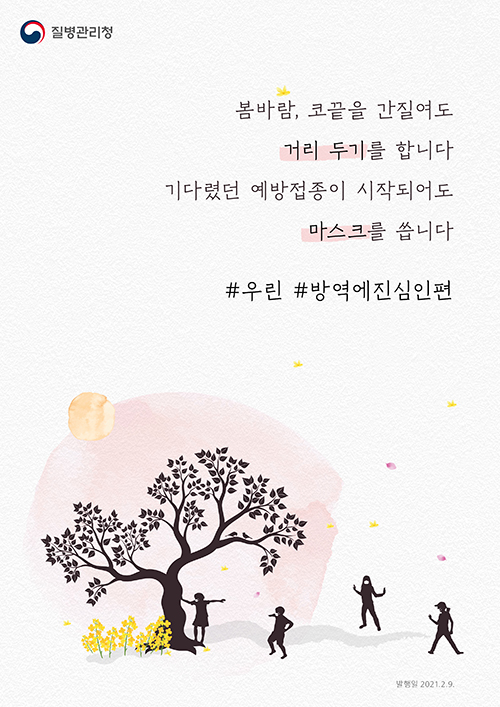 질병관리청
봄바람, 코끝을 간질여도
거리 두기를 합니다
기다렸던 예방접종이 시작되어도
마스크를 씁니다
#우린 #방역에진심인편
발행일 2021.2.9.